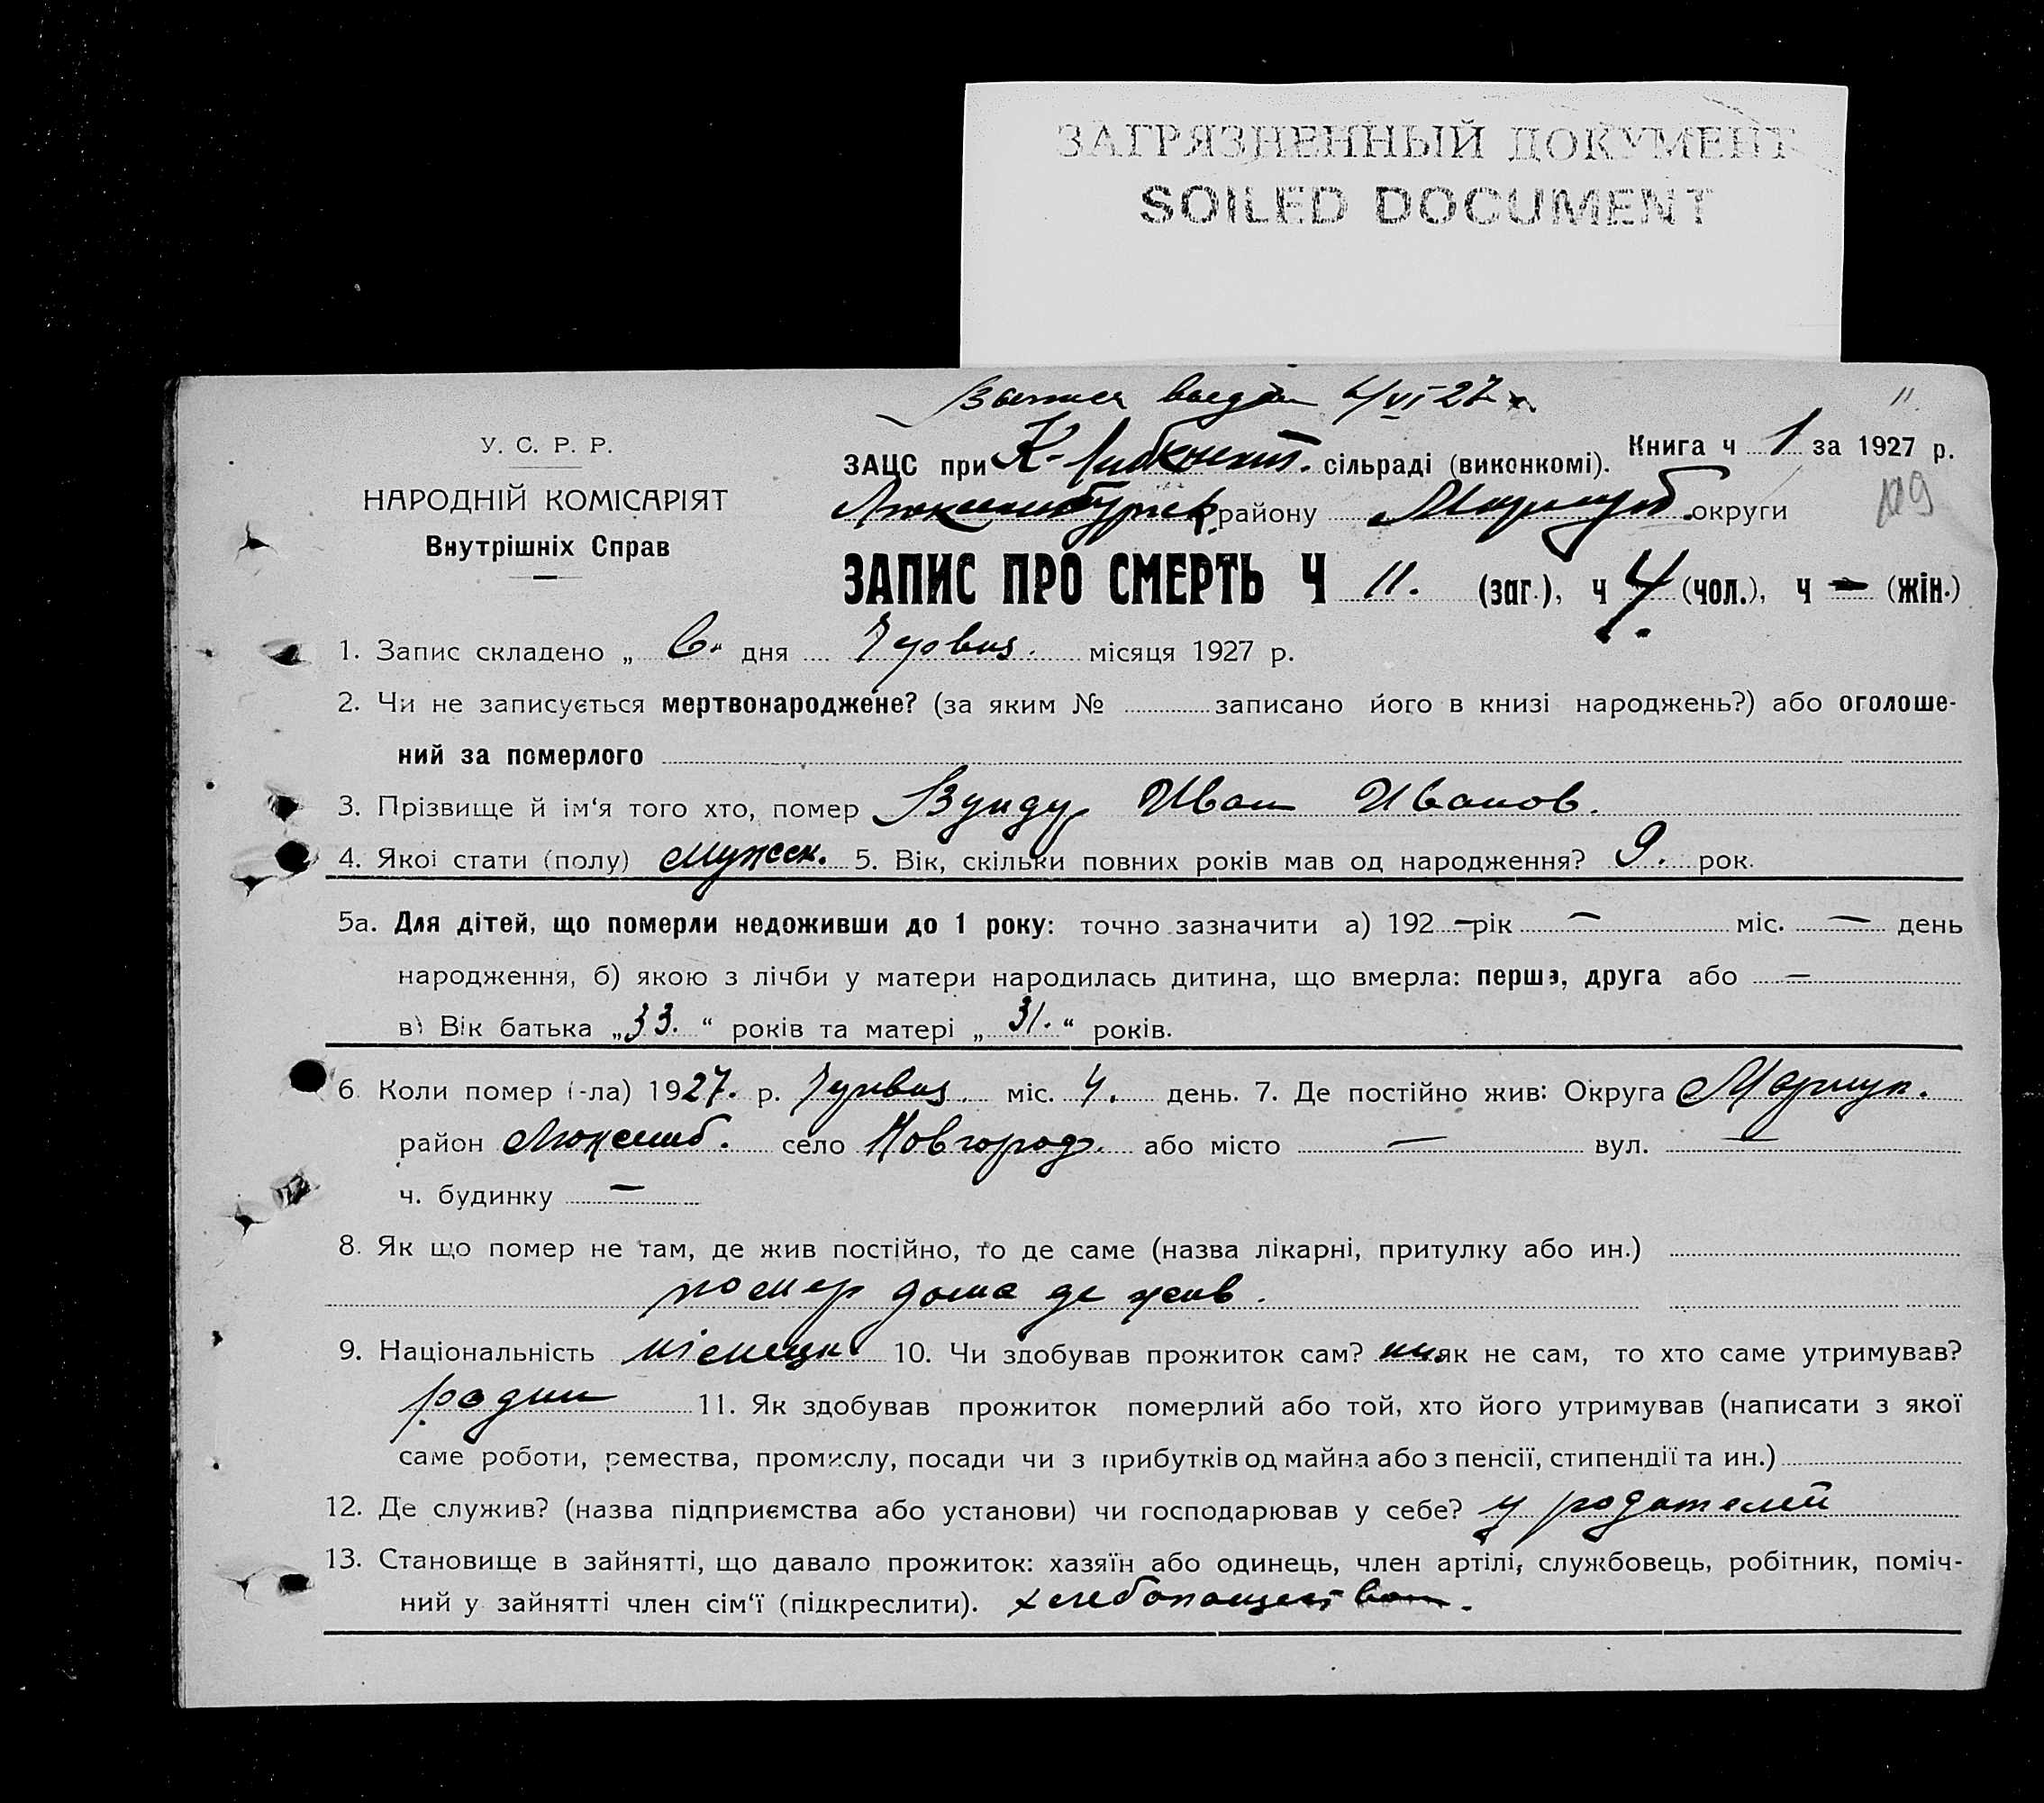 ЗАГРЯЗНЕННЫЙ ДОКУМЕНТ
SOILED DOCUMENT
4/VI 27
11
У. С. Р. Р.
НАРОДНІЙ КОМІСАРІЯТ
Внутрішніх Справ
Книга ч 1 за 1927 р.
ЗАЦС при К-Либкнехт. сільраді (виконкомі).
Люксембургск. району Мариуп. округи
119
ЗАПИС ПРО СМЕРТЬ Ч 11. (заг.), ч 4 (чол.), ч — (жін.)
1. Запис складено „ 6." дня Червня. місяця 1927 р.
2. Чи не записується мертвонароджене? (за яким № записано його в книзі народжень?) або оголоше-
ний за померлого
3. Прізвище й ім'я того хто, помер Вундер Иван Иванов.
4. Якої стати (полу) Мужеск. 5. Вік, скільки повних років мав од народження? 9. рок.
5а. Для дітей, що померли недоживши до 1 року: точно зазначити а) 192 — рік — міс. — день
народження, б) якою з лічби у матери народилась дитина, що вмерла: перша, друга або —
в) Вік батька „33." років та матері „31." років.
6 Коли помер (-ла) 1927. р. Червня. міс. 4. день. 7. Де постійно жив: Округа Мариуп.
район Люксемб. село Новгород. або місто — вул. —
ч. будинку —
8. Як що помер не там, де жив постійно, то де саме (назва лікарні, притулку або ин.)
помер дома де жив.
9. Національність німецьк. 10. Чи здобував прожиток сам? ни як не сам, то хто саме утримував?
родит 11. Як здобував прожиток померлий або той, хто його утримував (написати з якої
саме роботи, ремества, промислу, посади чи з прибутків од майна або з пенсії, стипендії та ин.)
12. Де служив? (назва підприємства або установи) чи господарював у себе? у родителей
13. Становище в зайнятті, що давало прожиток: хазяїн або одинець, член артілі, службовець, робітник, поміч-
ний у зайнятті член сім'ї (підкреслити). хлебопашеством.